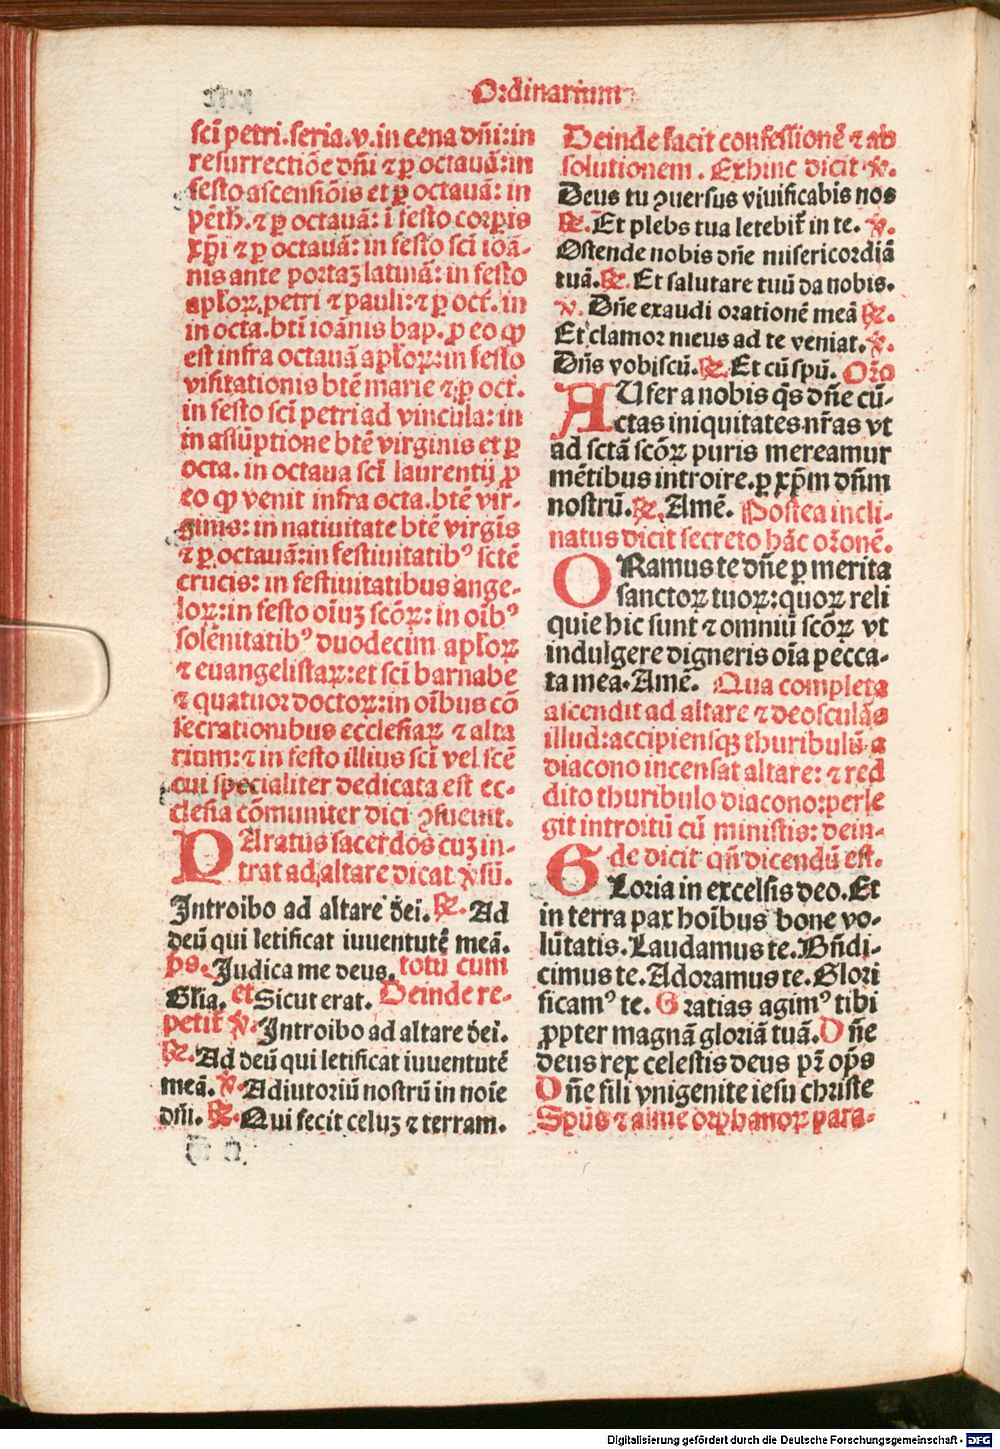 Ordinarium
sci̅ petri. feria .v. in cena dn̄i: in
resurrectiōe dn̄i ⁊ ꝑ octauā: in
festo ascensiōis et ꝑ octauā: in
pēth. ⁊ ꝑ octauā: ī festo corpꝑis
xp̄i ⁊ ꝑ octauā: in festo sci̅ ioā-
nis ante portaꝫ latinā: in festo
apl'oꝝ petri ⁊ pauli: ⁊ ꝑ oct'. in
in octa. bt̄i ioānis bap. ꝑ eo ꝙ
est infra octauā apl'oꝝ: in festo
visitationis bt̄e marie ⁊ ꝑ oct'.
in festo sci̅ petri ad vincula: in
in assūptione bt̄e virginis et ꝑ
octa. in octaua sci̅ laurentij ꝑ
eo ꝙ venit infra octa. bt̄e vir-
ginis: in natiuitate bt̄e virgīs
⁊ ꝑ octauā: in festiuitatibꝰ sctē
crucis: in festiuitatibus ange-
loꝝ: in festo oīuꝫ scōꝝ: in oībꝰ
solēnitatibꝰ duodecim apl'oꝝ
⁊ euangelistaꝝ: et sci̅ barnabe
⁊ quatuor doctoꝝ: in oībus cō
secrationibus ecclesiaꝝ ⁊ alta
rium: ⁊ in festo illius sci̅ vel scē
cui specialiter dedicata est ec-
clesia cōmuniter dici ꝯsueuit.
PAratus sacerdos cuꝫ in-
trat ad altare dicat ℣sū.
Introibo ad altare dei. ℟. Ad
deū qui letificat iuuentutē meā.
ps. Judica me deus. totū cum
Glīa. et Sicut erat. Deinde re-
petit' ℣. Introibo ad altare dei.
℟. Ad deū qui letificat iuuentutē
meā. ℣. Adiutoriū nostrū in noīe
dn̄i. ℟. Qui fecit celuꝫ ⁊ terram.
Deinde facit confessionē ⁊ ab
solutionem. Exhinc dicit ℣.
Deus tu ꝯuersus viuificabis nos
℟. Et plebs tua letebit' in te. ℣.
Ostende nobis dn̄e misericordiā
tuā. ℟. Et salutare tuū da nobis.
℣. Dn̄e exaudi orationē meā ℟.
Et clamor meus ad te veniat. ℣.
Dn̄s vobiscū. ℟. Et cū spū. Or̄o
AUfer a nobis q̄s dn̄e cū-
ctas iniquitates nr̄as vt
ad sctā scōꝝ puris mereamur
mētibus introire. ꝑ xp̄m dn̄m
nostrū. ℟. Amē. Postea incli-
natus dicit secreto hāc or̄onē.
ORamus te dn̄e ꝑ merita
sanctoꝝ tuoꝝ: quoꝝ reli
quie hic sunt ⁊ omniū scōꝝ vt
indulgere digneris oīa pecca-
ta mea. Amē. Qua completa
ascendit ad altare ⁊ deosculās
illud: accipiensqꝫ thuribulū a
diacono incensat altare: ⁊ red
dito thuribulo diacono: perle
git introitū cū ministris: dein-
de dicit qn̄ dicendū est.
GLoria in excelsis deo. Et
in terra pax hoībus bone vo-
lūtatis. Laudamus te. Bn̄di-
cimus te. Adoramus te. Glori
ficamꝰ te. Gratias agimꝰ tibi
ꝓpter magnā gloriā tuā. Dn̄e
deus rex celestis deus pr̄ op̄s
Dn̄e fili vnigenite iesu christe
Spūs ⁊ alme orphanoꝝ para-
Digitalisierung gefördert durch die Deutsche Forschungsgemeinschaft - DFG